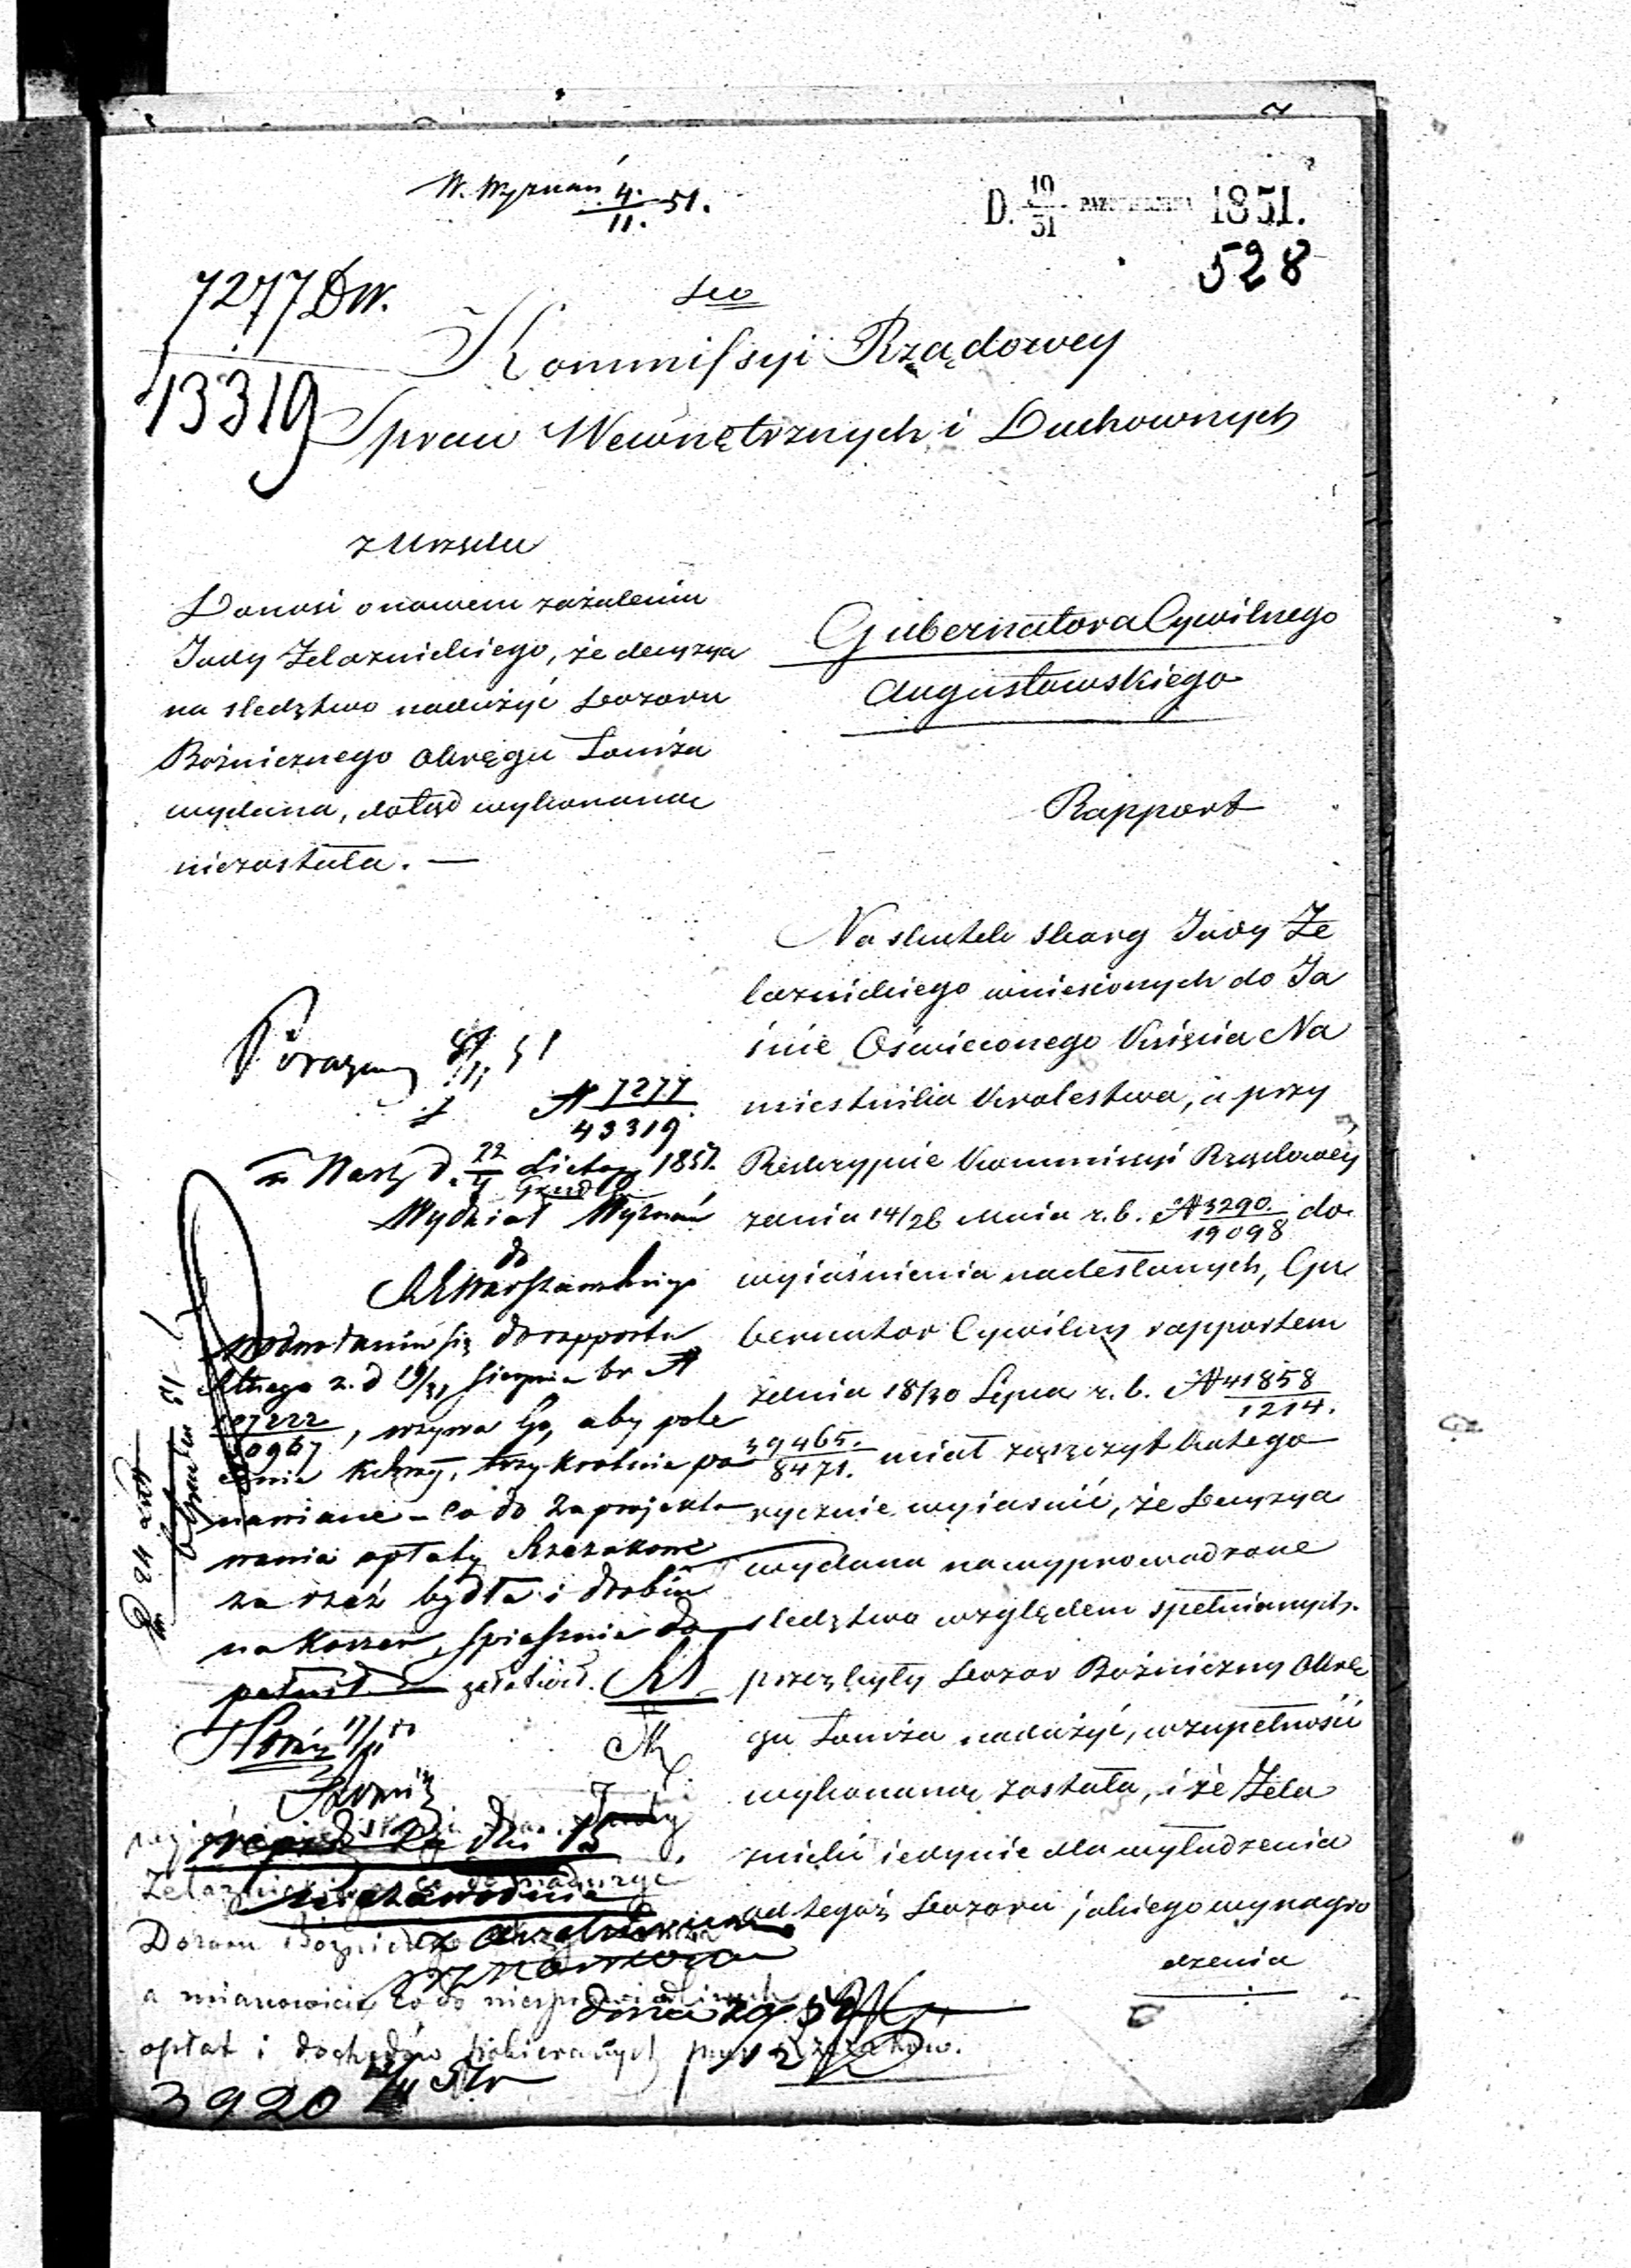 W. Wyznań 4./11. 51.
D. 19/31 PAZDZIERNIKA 1851.
528
7277 Dw.
13319
do
Kommissyi Rządowey
Spraw Wewnętrznych i Duchownych
z Urzędu
Donosi o nowem zażaleniu
Judy Żelaznickiego, że decyzya
na sledztwo nadużyć Dozoru
Bożnicznego Okręgu Łomża
wydana, dotąd wykonaną
niezostała. —
Gubernatora Cywilnego
Augustowskiego
Rapport
Na skutek skarg Judy Że
laznickiego wniesionych do Ja
śnie Oświeconego Xięcia Na
miestnika Krolestwa, a przy
Reskrypcie Kommissyi Rządowey
z dnia 14/26 Maia r. b. N 3290./19098 do
wyiaśnienia nadesłanych, Gu
bernator Cywilny rapportem
z dnia 18/30 Lipca r. b. N 41858/1214.
39465./8471. miał zaszczyt katego
rycznie wyiasnić, że Decyzya
wydana na wyprowadzone
sledztwo względem spełnianych
przez były Dozor Bożniczny Okrę
gu Łomża nadużyć, w zupełności
wykonaną została, i że Żela
znicki iedynie dla wyłudzenia
od tegoż Dozoru jakiego wynagro
dzenia
N 7277
43319
w Warsz d. 22 Listop 1851.
Grud
Wydział Wyznań
do
G. Warszawskiego
w odwołaniu się do rapportu
z d 19/31 Sierpnia br N
, wzywa Go, aby pole
cenie trzykrotnie po
nawiane – co do zaprojekto
wania opłaty Rzezakom
za rzeź bydła i drobiu
na koszer, spiesznie
załatwił.
Żelaznickiego co do nadużyć
Dozoru Bożniczego
a mianowicie co do
opłat i dochodów pobieranych
3920